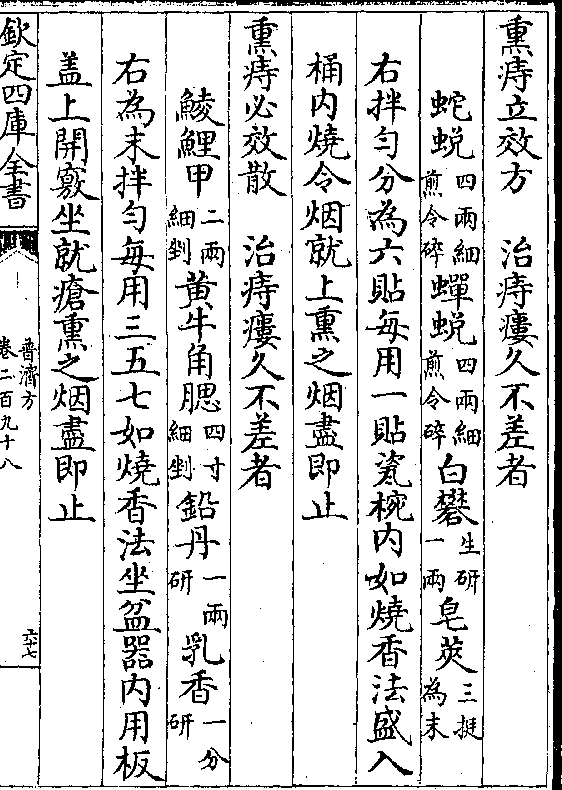 熏痔立效方　治痔瘻久不差者
蛇蛻四兩細煎令碎蟬蛻四兩細煎令碎白礬生研一兩皂莢三挺為末
右拌勻分為六貼每用一貼瓷椀内如燒香法盛入
桶内燒令烟就上熏之烟盡即止
熏痔必效散　治痔瘻久不差者
鯪鯉甲二兩細剉黄牛角䚡四寸細剉鉛丹一兩研乳香一分研
右為末拌勻每用三五七如燒香法坐盆器内用板
盖上開竅坐就瘡熏之烟盡即止
欽定四庫全書
普濟方
卷二百九十八
六十七